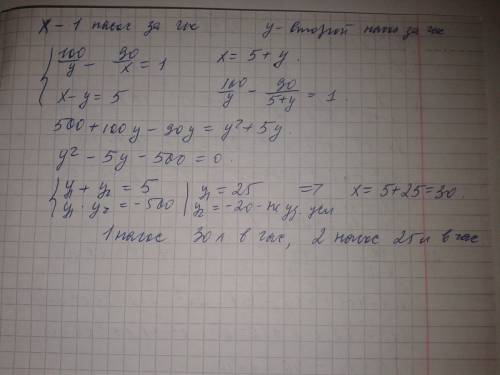 x - 1 насос за час        y - второй насос за час
{ 100/y - 90/x = 1        x = 5 + y.
{ x - y = 5        100/y - 90/(5+y) = 1.
500 + 100y - 90y = y² + 5y.
y² - 5y - 500 = 0.
{ y₁ + y₂ = 5 | y₁ = 25        =>    x = 5+25=30.
{ y₁ · y₂ = -500 | y₂ = -20 - не уд. усл
1 насос 30 л в час, 2 насос 25 л в час